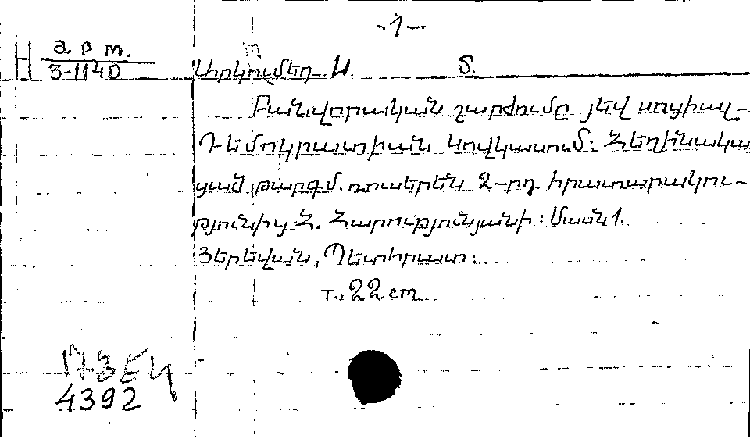 -1-
арт.
3-1140
Արկոմեդ Ս. Տ.
Բանվորական շարժումը յեվ սոցիալ-
Դեմոկրատիան Կովկասում: Հեղինակա
ցած թարգմ. ռուսերեն 2-րդ հրատարակու-
թյունից Հ. Հարությունյանի: Մասն 1.
Յերեվան, Պետհրատ:
т. 22 cm
4392